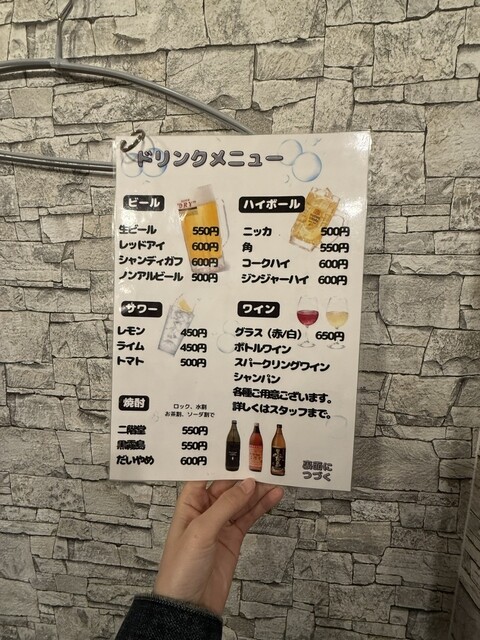 ドリンクメニュー
ビール
生ビール 550円
レッドアイ 600円
シャンディガフ 600円
ノンアルビール 500円
ハイボール
ニッカ 500円
角 550円
コークハイ 600円
ジンジャーハイ 600円
サワー
レモン 450円
ライム 450円
トマト 500円
ワイン
グラス（赤/白） 650円
ボトルワイン
スパークリングワイン
シャンパン
各種ご用意ございます。
詳しくはスタッフまで。
焼酎
ロック、水割
お茶割、ソーダ割で
二階堂 550円
黒霧島 550円
だいやめ 600円
裏面に
つづく